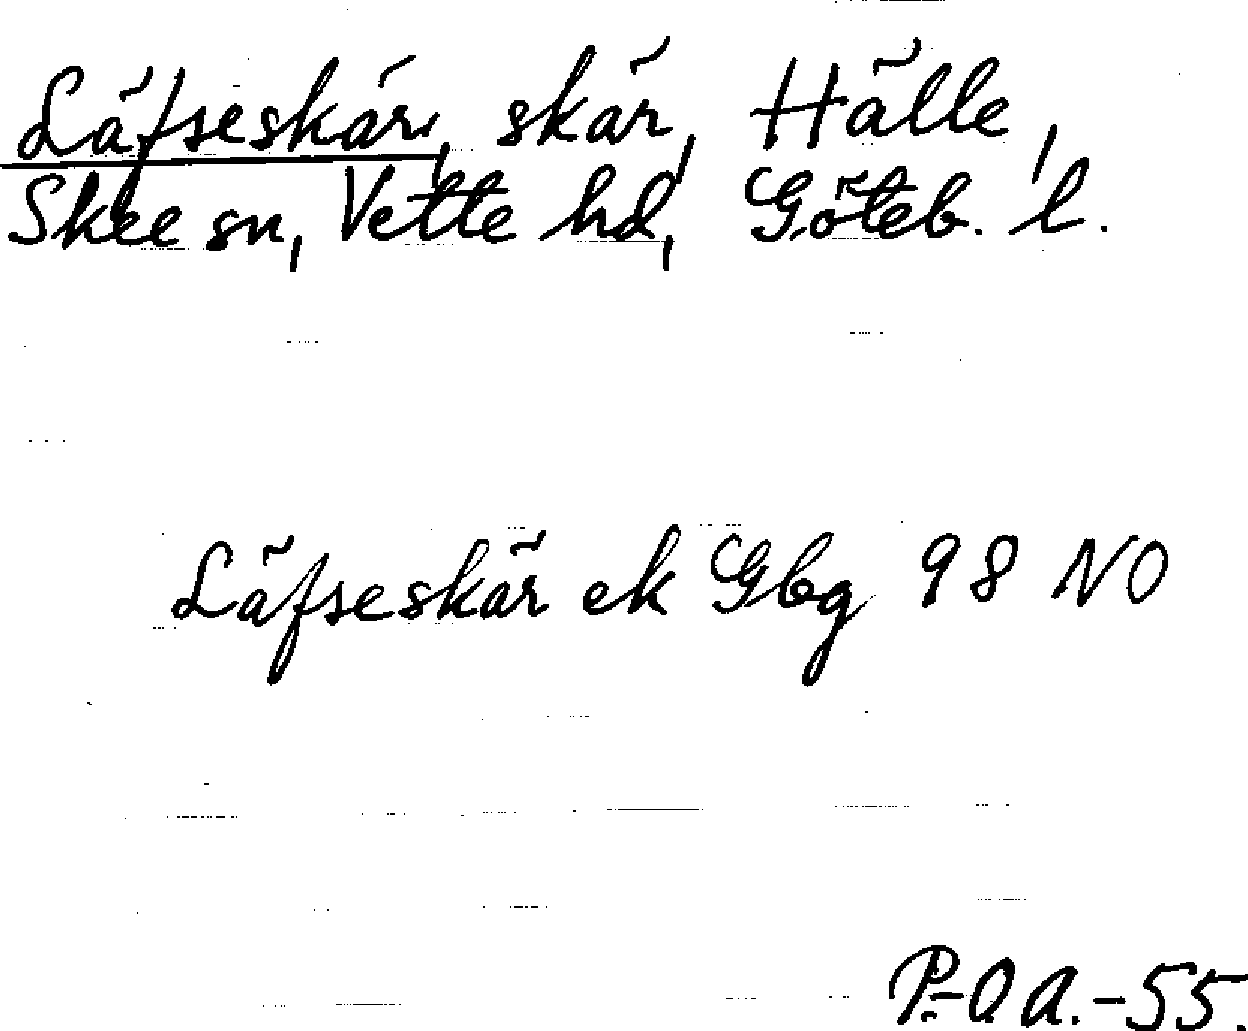 Läfseskär, skär, Hälle,
Skee sn, Vette hd, Göteb. l.
Läfseskär ek Gbg 98 NO
P.-O A.-55.